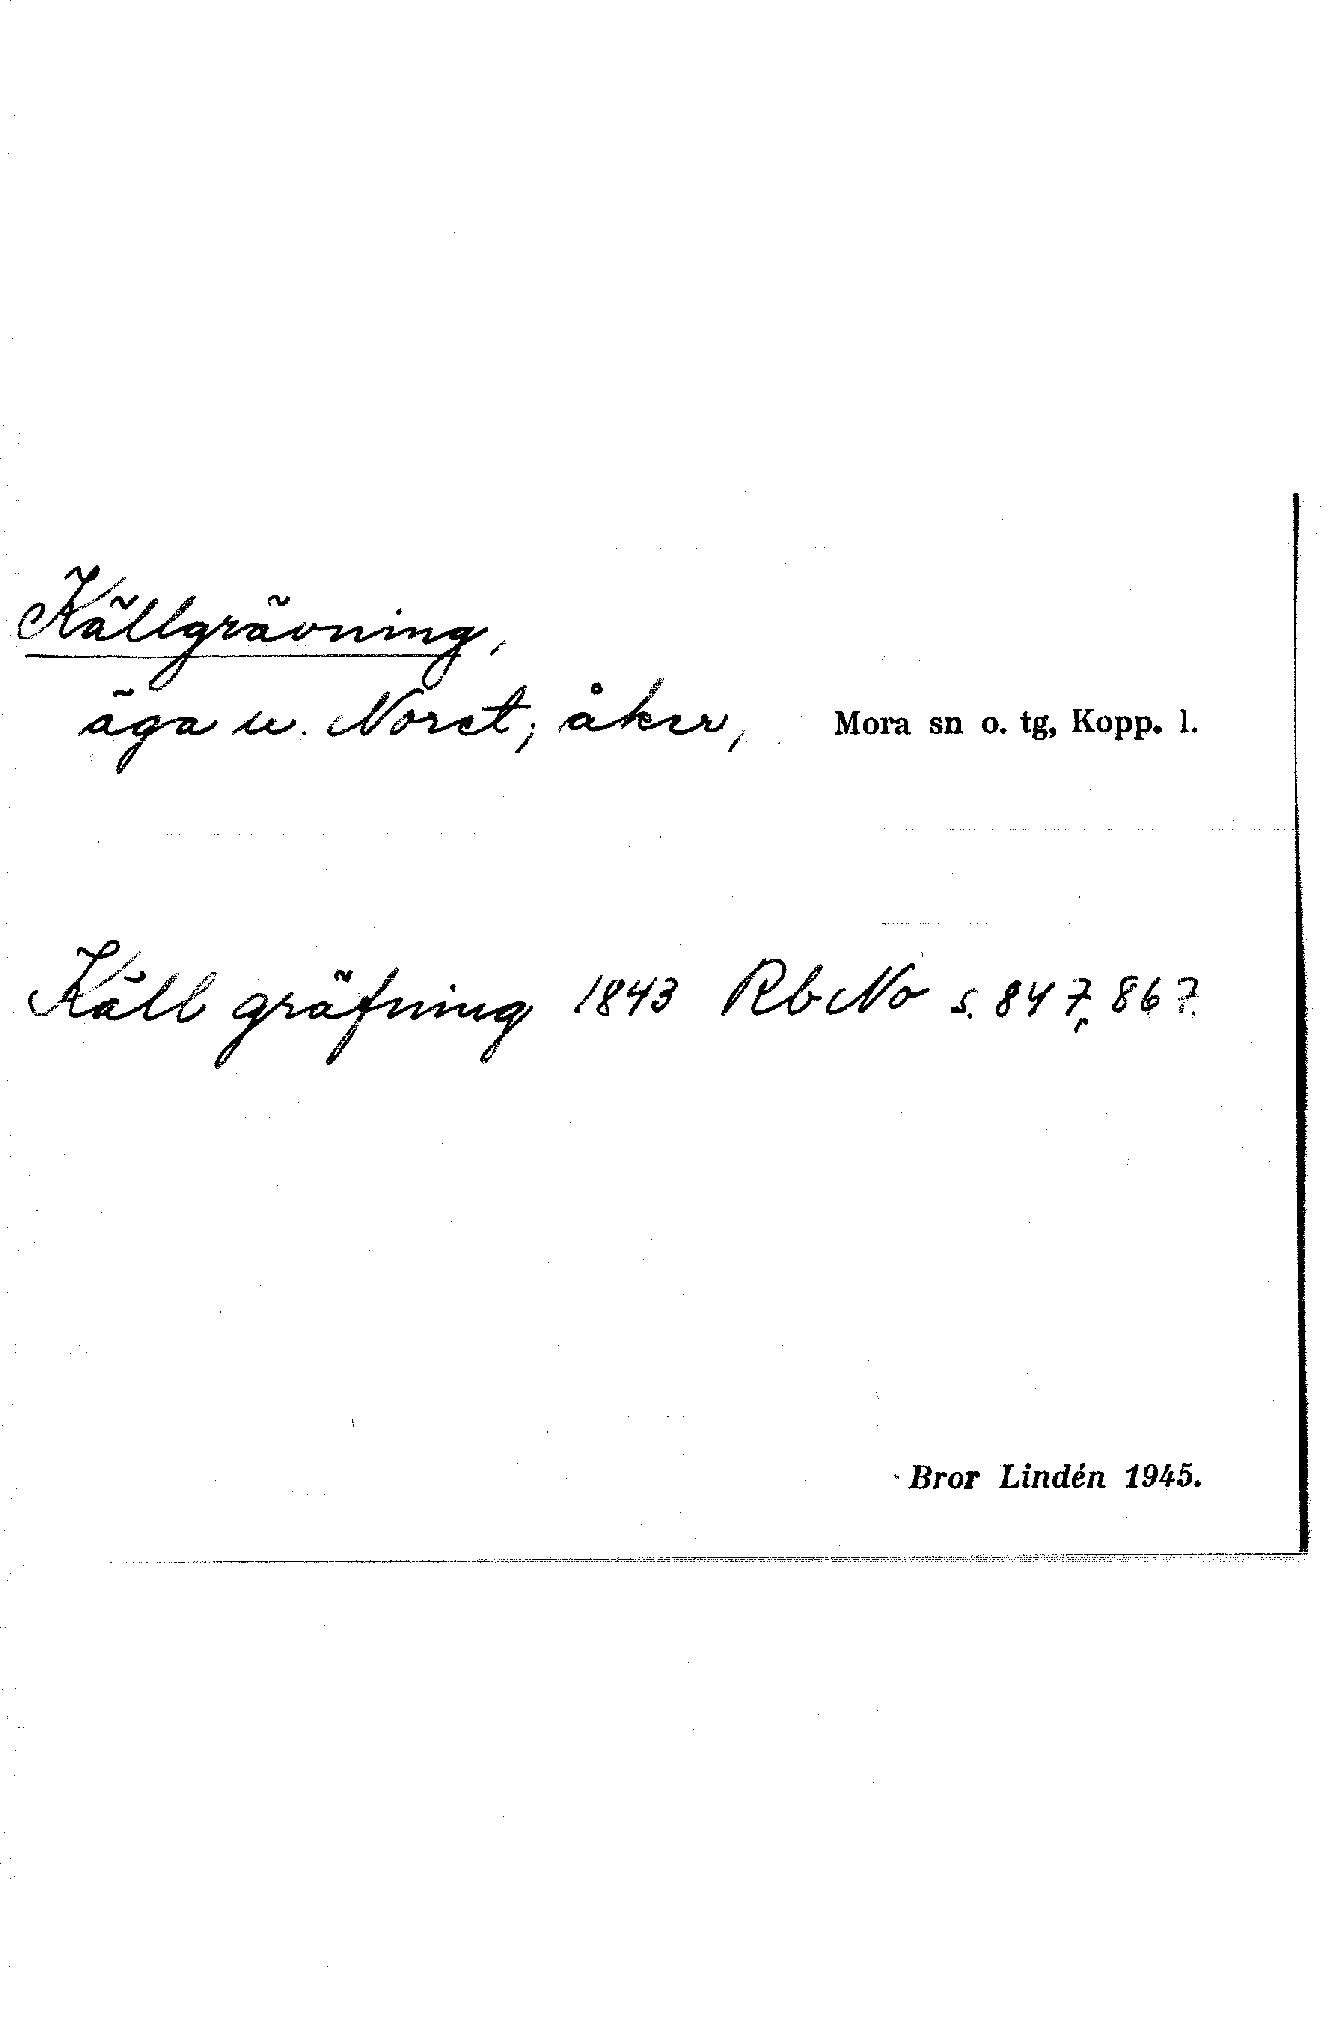 Källgrävning,
äga u. Noret; åker, Mora sn o. tg, Kopp. l.
Käll gräfning 1843 RbNo s. 847, 867.
Bror Lindén 1945.